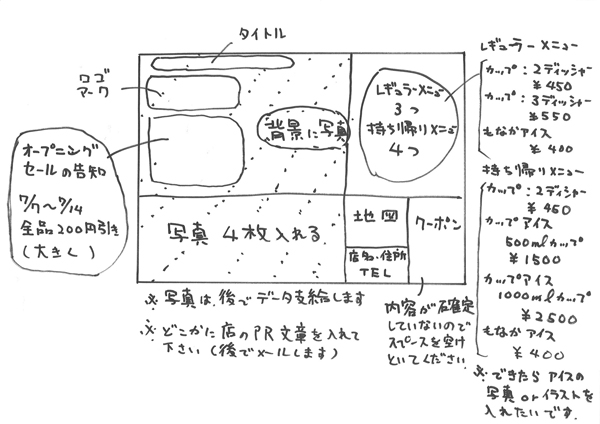 タイトル
ロゴ
マーク
オープニング
セールの告知
7/7〜7/14
全品200円引き
(大きく)
背景に写真
写真 4枚入れる
レギュラーメニュー
3つ
持ち帰りメニュー
4つ
地図
店名・住所
TEL
クーポン
内容が確定
していないので
スペースを空け
といてください
※写真は、後でデータ支給します
※どこかに店のPR文章を入れて
下さい(後でメールします)
レギュラーメニュー
カップ:2ディッシャー
¥450
カップ:3ディッシャー
¥550
もなかアイス
¥400
持ち帰りメニュー
カップ:2ディシャー
¥450
カップアイス
500mlカップ
¥1500
カップアイス
1000mlカップ
¥2500
もなかアイス
¥400
※できたらアイスの
写真orイラストを
入れたいです.